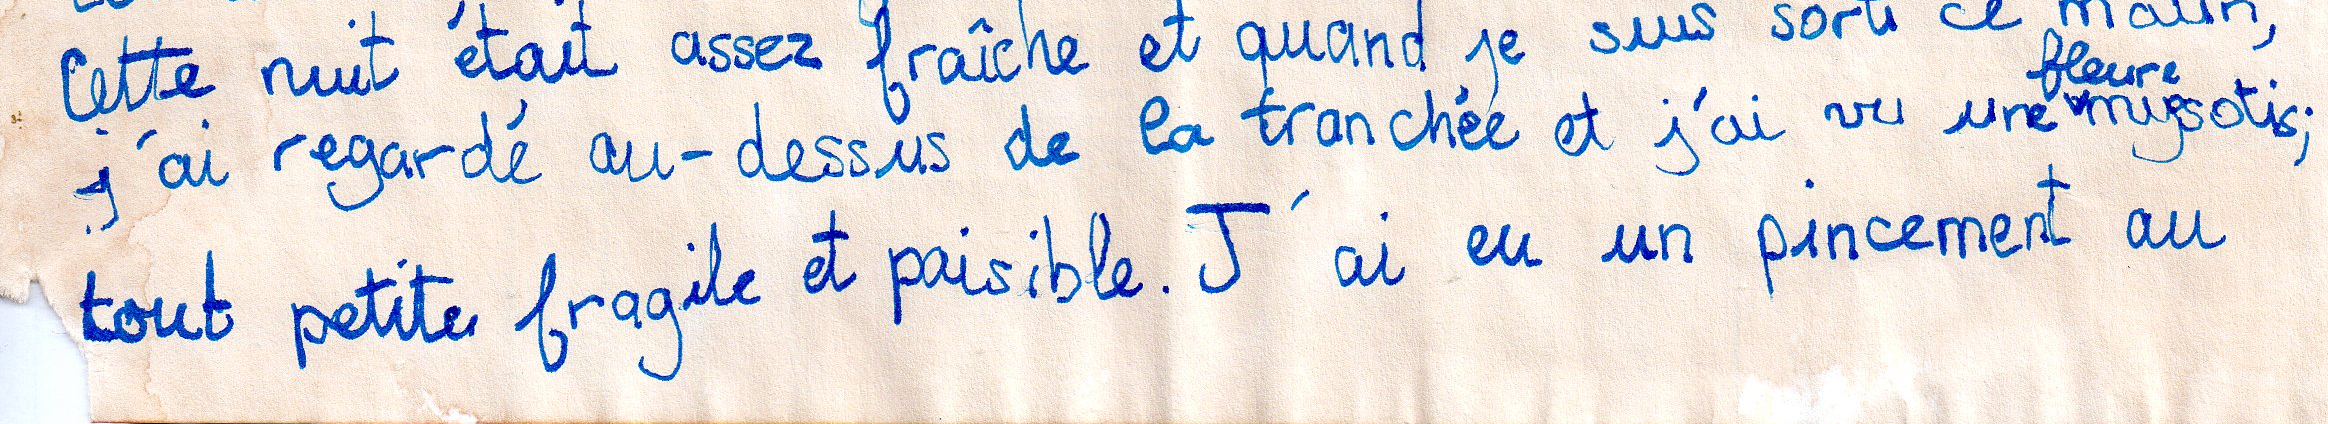 Cette nuit était assez fraîche et quand je suis sorti ce matin,
j'ai regardé au-dessus de la tranchée et j'ai vu une fleure mysotis;
tout petite fragile et paisible. J'ai eu un pincement au